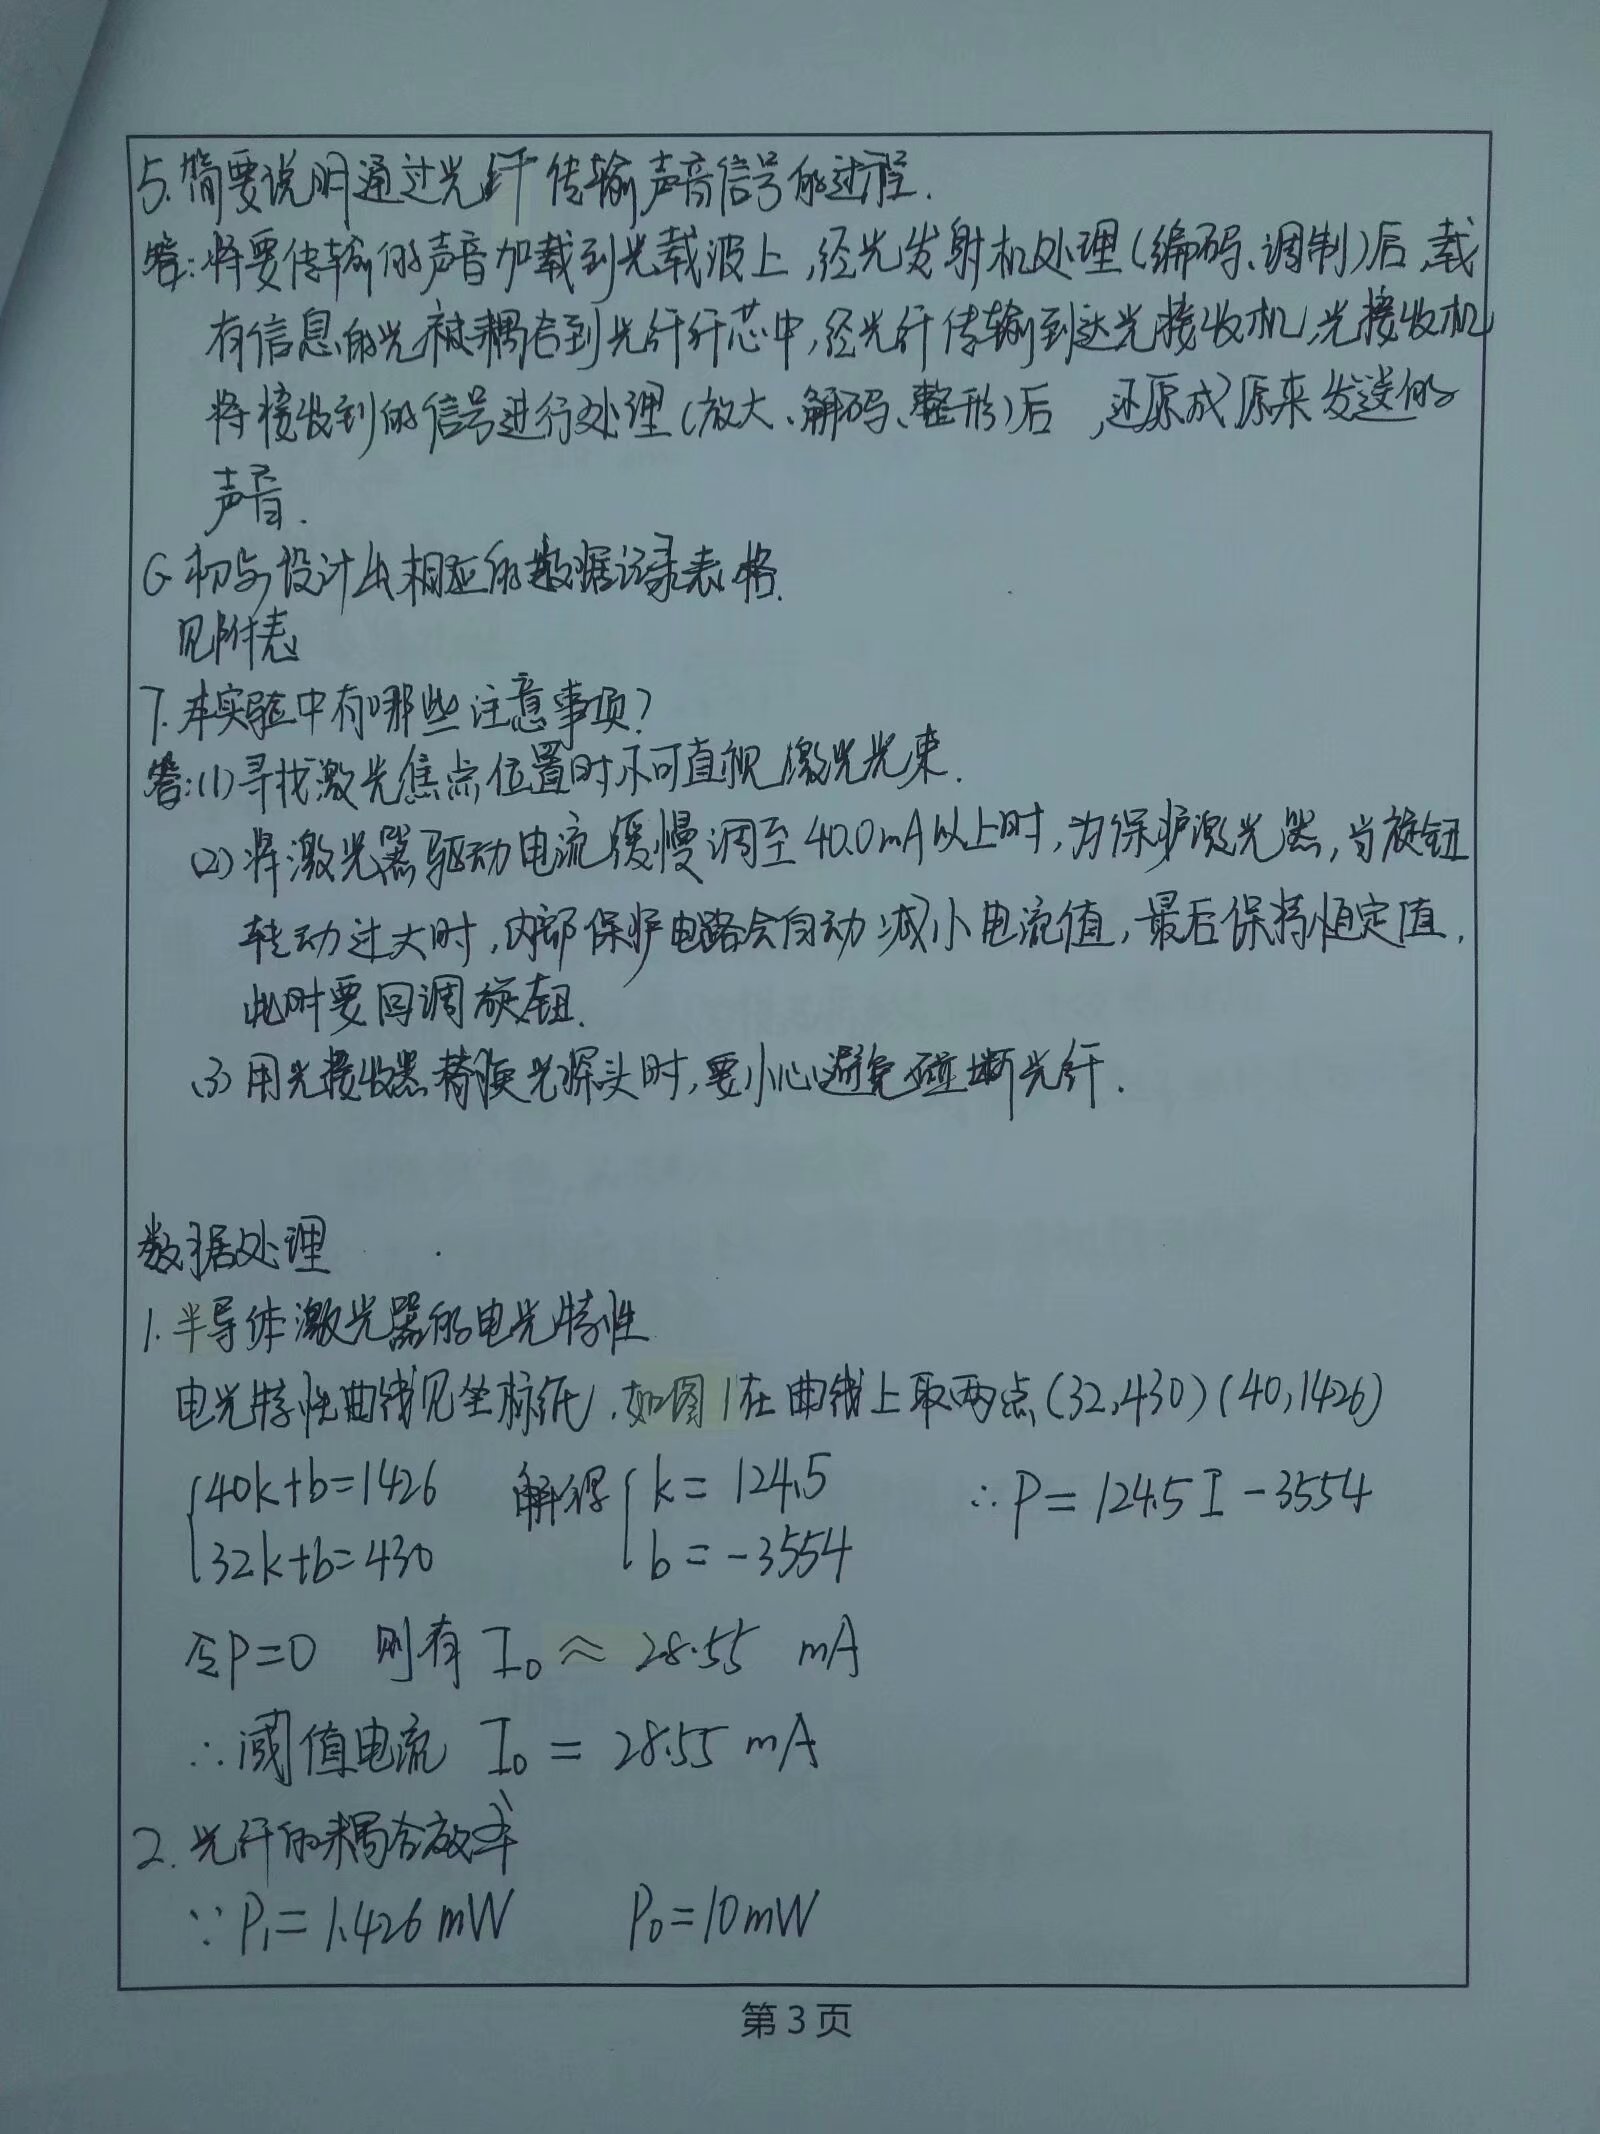 5.简要说明通过光纤传输声音信号的过程.
答:将要传输的声音加载到光载波上,经光发射机处理(编码、调制)后,载
有信息的光被耦合到光纤纤芯中,经光纤传输到达光接收机,光接收机
将接收到的信号进行处理(放大、解码、整形)后,还原成原来发送的
声音.
6 初步设计出相应的数据记录表格.
见附表
7.本实验中有哪些注意事项?
答:(1)寻找激光焦点位置时不可直视激光光束.
(2)将激光器驱动电流缓慢调至40.0mA以上时,为保护激光器,当旋钮
转动过大时,内部保护电路会自动减小电流值,最后保持恒定值,
此时要回调旋钮.
(3)用光接收器替换光探头时,要小心避免碰断光纤.
数据处理
1.半导体激光器的电光特性
电光特性曲线见坐标纸,如图1在曲线上取两点(32,430)(40,1426)
{40k+b=1426 解得{k=124.5 ∴P=124.5I-3554
32k+b=430 b=-3554
令P=0 则有 I₀≈28.55 mA
∴阈值电流 I₀=28.55 mA
2.光纤的耦合效率
∵P₁=1.426mW P₀=10mW
第3页